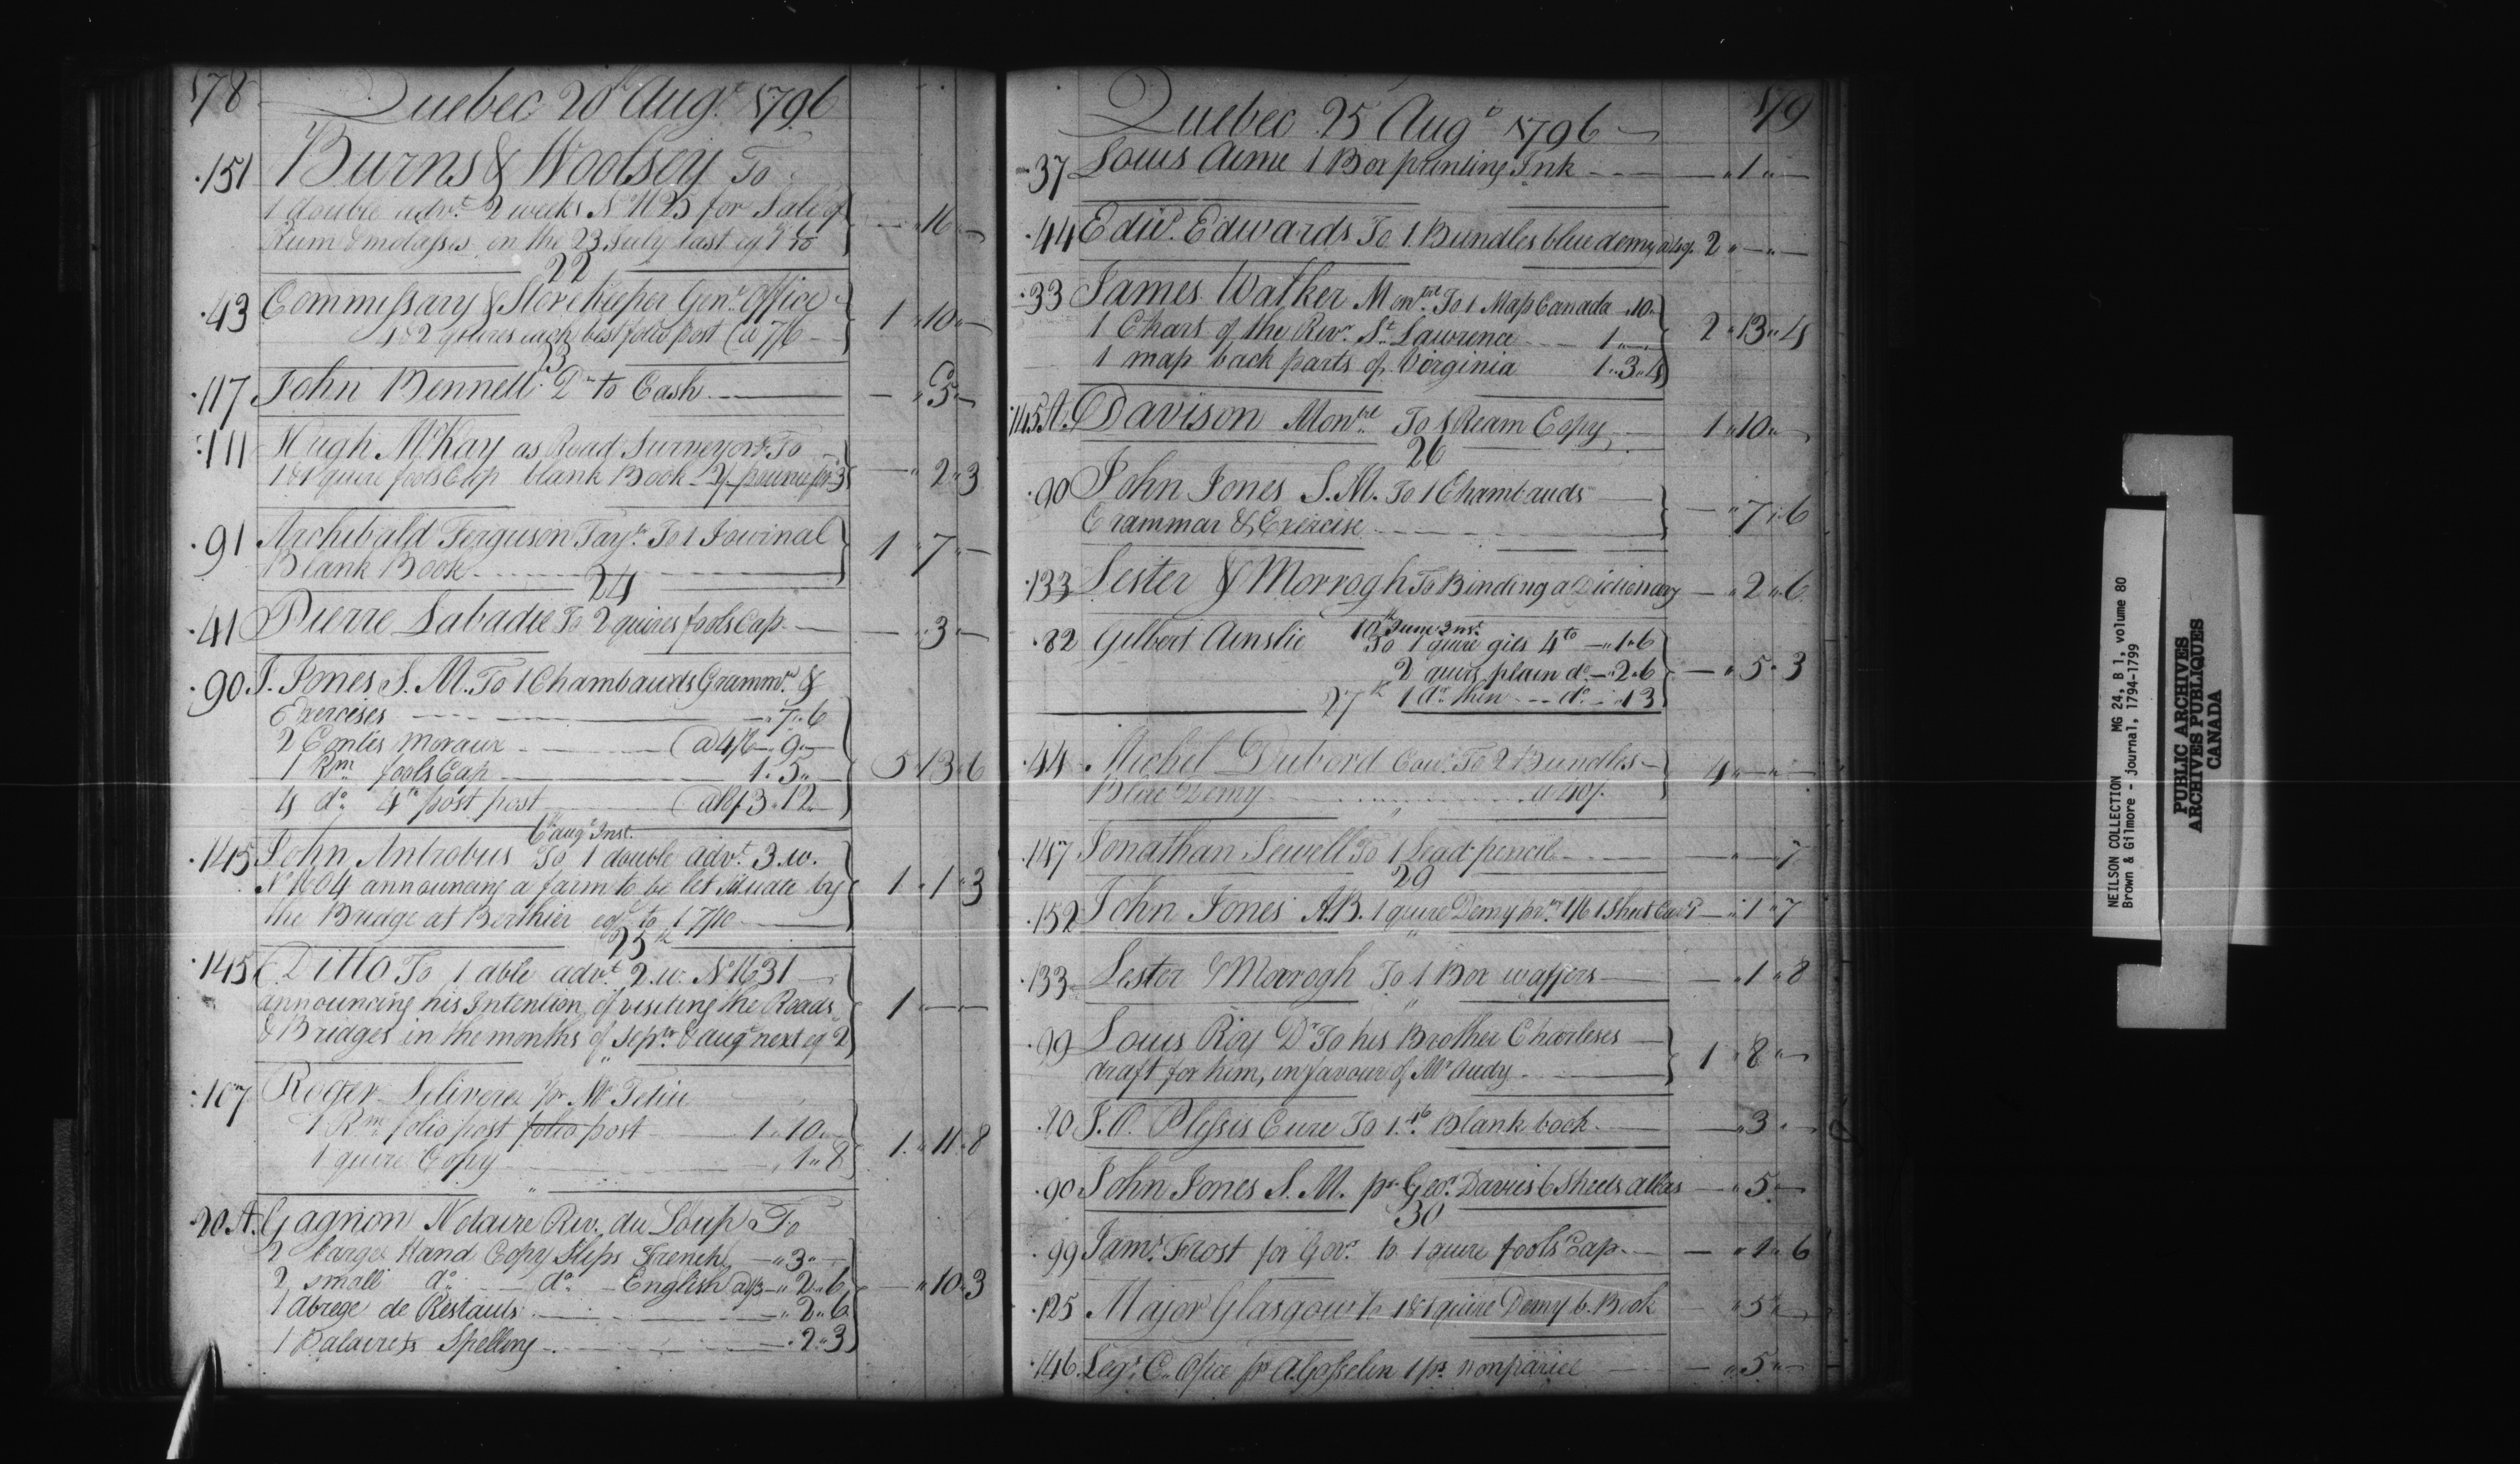 178
Quebec 20 Augt. 1796
151 Burns & Woolsey To
1 double advt. 2 weeks No. 1625 for Sale of
Rum & molasses on the 23 July last eq
— " 16 " —
22
43 Commissary & Storekeeper Genl. Office
4 & 2 quires each best folio post @ 7/6
1 " 10 " —
23
117 John Bennett Dr. to Cash — " 5 " —
111 Hugh McKay as Road Surveyor To
1 & 1 quire fools Cap blank Book — " 2 " 3
91 Archibald Ferguson Tayr. To 1 Jowrnal
Blank Book
1 " 7 " —
24
41 Pierre Labadie To 2 quires fools Cap — " 3 " —
90 J. Jones S. M. To 1 Chambauds Grammr. &
Exercises — " 7 " 6
2 Contes moraux @ 4/6 — " 9 " —
1 Rm. fools Cap 1 " 5 " —
4 do. 4to post post 3 " 12
5 " 13 " 6
6 augt. Inst.
145 John Antrobus To 1 double advt. 3 w.
No. 1604 announcing a farm to be let situate by
the Bridge at Berthier eql. to
1 " 1 " 3
25th
145 Ditto To 1 able advt. 2 w. No. 1631
announcing his Intention of visiting the Roads
& Bridges in the months of Sepr. & augt next eq 2
1 " — " —
107 Roger Lelivere pr. Mr.
1 Rm. folio post folio post 1 " 10 " —
1 quire Copy " 1 " 8
1 " 11 " 8
20 A. Gagnon Notaire Riv. du Loup To
2 large Hand Copy Slips French — " 3 " —
2 small do. do. English a 1/3 — " 2 " 6
1 Abrege de Restauts — " 2 " 6
1 Palairets Spelling " 2 " 3
— " 10 " 3
179
Quebec 25 Augt. 1796
37 Louis Aime 1 Box printing Ink — " 1 " —
44 Edwd. Edwards To 1 Bundles blue demy 2 " — " —
33 James Walker Montrl. To 1 Map Canada " 10 "
1 Chart of the Rivr. St. Lawrence 1 " — "
1 map back parts of Virginia 1 " 3 " 4
2 " 13 " 4
115 A. Davison Montrl. To 1 Ream Copy 1 " 10 " —
26
90 John Jones S. M. To 1 Chambauds
Grammar & Exercise
— " 7 " 6
133 Lester & Morrogh To Binding a Dictionary — " 2 " 6
10th June Inst.
82 Gilbert Ainslie To 1 quire gilt 4to — " 1 " 6
2 quirs plain do. — " 2 " 6
1 do. thin do. " 1 3
— " 5 " 3
27th
44 Michel Dubord Cour. To 2 Bundles
Blue Demy a 40/.
4 " — " —
147 Jonathan Sewell To 1 Lead pencil — " — " 7
29
152 John Jones A.B. 1 quire Demy 1/6 1 Sheet — " 1 " 7
133 Lester & Morrogh To 1 Box waffers — " 1 " 8
99 Louis Roy Dr To his Brother Charleses
draft for him, in favour of Mr. Audy
1 " 8 " —
80 J. O. Plessis Cure To 1 4to. Blank book — " 3 " —
90 John Jones S. M. pr. Geo. Davies 6 Sheets atlas — " 5 " —
30
99 Jams. Frost for Govt. to 1 quire fools Cap — " 1 " 6
125 Major Glasgow To 1 & 1 quire Demy b. Book " 5 " —
146 Legr. C. Ofice pr A. Gosselin 1 ps. nonpariel — " 5 " —
NEILSON COLLECTION MG 24, B 1, volume 80
Brown & Gilmore - journal, 1794-1799
PUBLIC ARCHIVES
ARCHIVES PUBLIQUES
CANADA